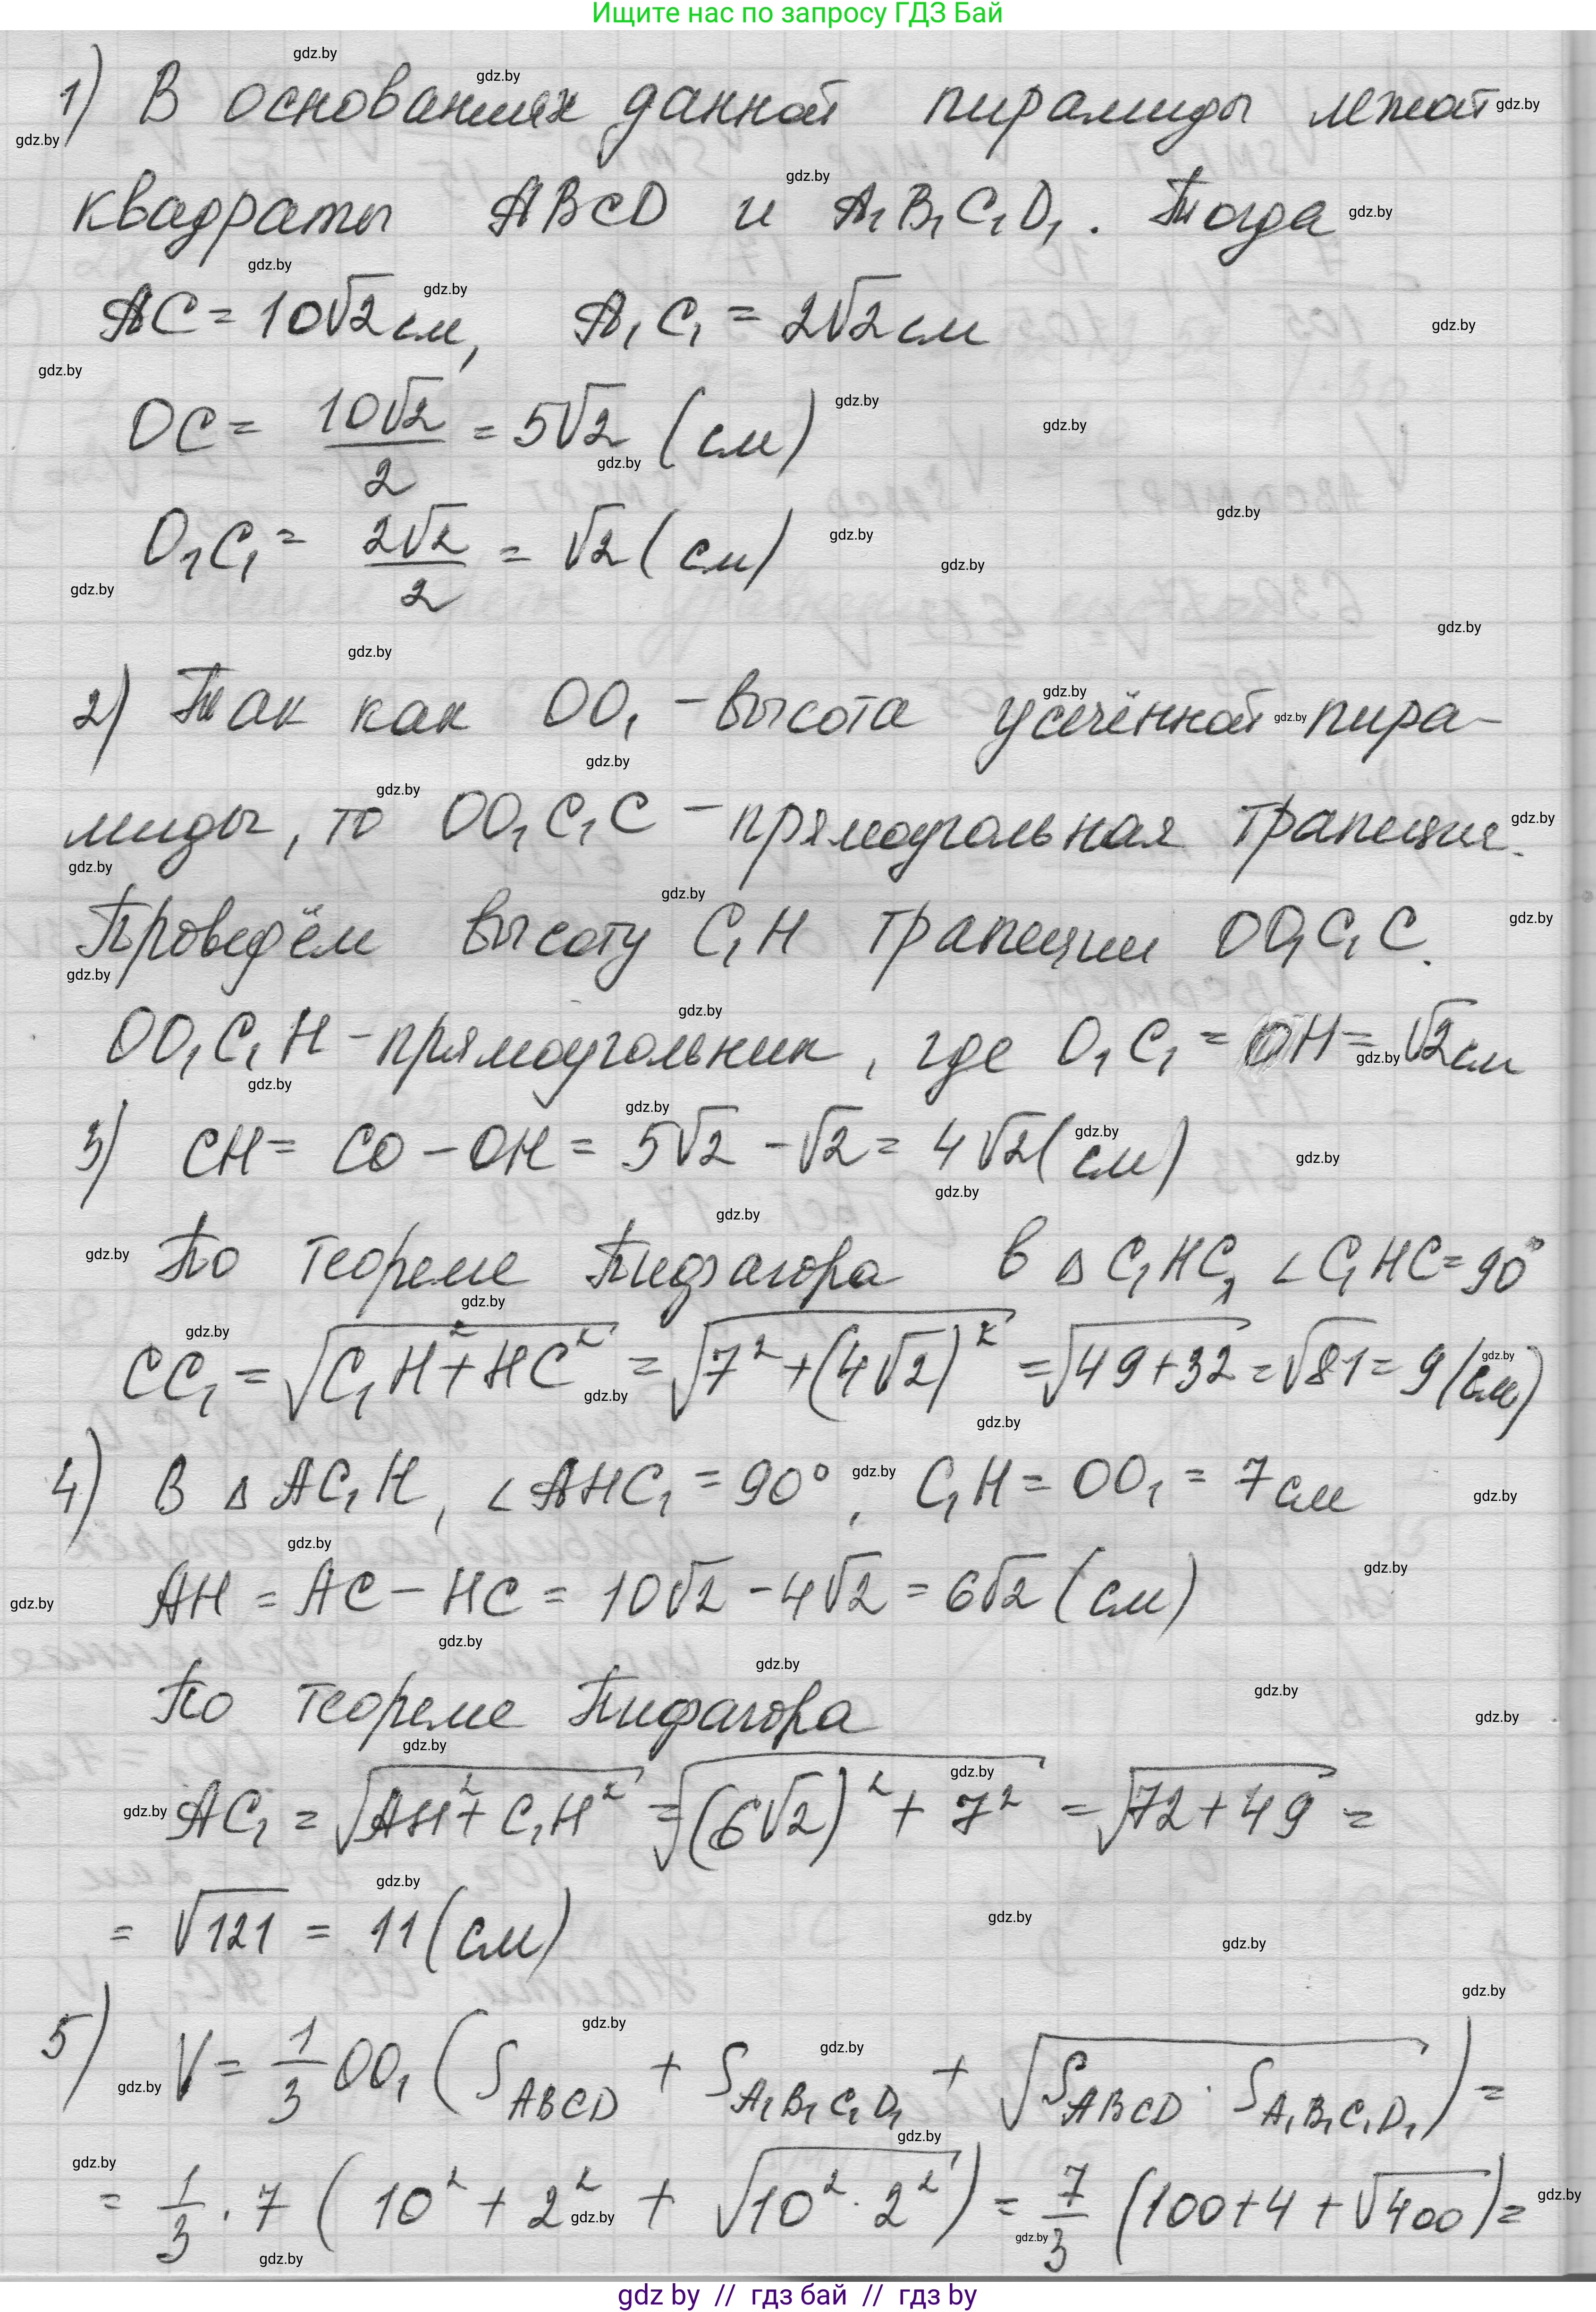 Ищите нас по запросу ГДЗ Бай
1) В основаниях данной пирамиды лежат
квадраты ABCD и A₁B₁C₁D₁. Тогда
AC = 10√2 см, A₁C₁ = 2√2 см
OC = 10√2/2 = 5√2 (см)
O₁C₁ = 2√2/2 = √2 (см)
2) Так как OO₁ – высота усечённой пира-
миды, то OO₁C₁C – прямоугольная трапеция.
Проведём высоту C₁H трапеции OO₁C₁C.
OO₁C₁H – прямоугольник, где O₁C₁ = OH = √2 см
3) CH = CO – OH = 5√2 – √2 = 4√2 (см)
По теореме Пифагора в △C₁HC, ∠C₁HC = 90°
CC₁ = √(C₁H² + HC²) = √(7² + (4√2)²) = √(49+32) = √81 = 9 (см)
4) В △AC₁H, ∠AHC₁ = 90°, C₁H = OO₁ = 7 см
AH = AC – HC = 10√2 – 4√2 = 6√2 (см)
По теореме Пифагора
AC₁ = √(AH² + C₁H²) = √((6√2)² + 7²) = √(72+49) =
= √121 = 11 (см)
5) V = 1/3 OO₁ (S_ABCD + S_A₁B₁C₁D₁ + √(S_ABCD · S_A₁B₁C₁D₁)) =
= 1/3 · 7 (10² + 2² + √(10² · 2²)) = 7/3 (100+4+√400) =
gdz by // гдз бай // гдз by